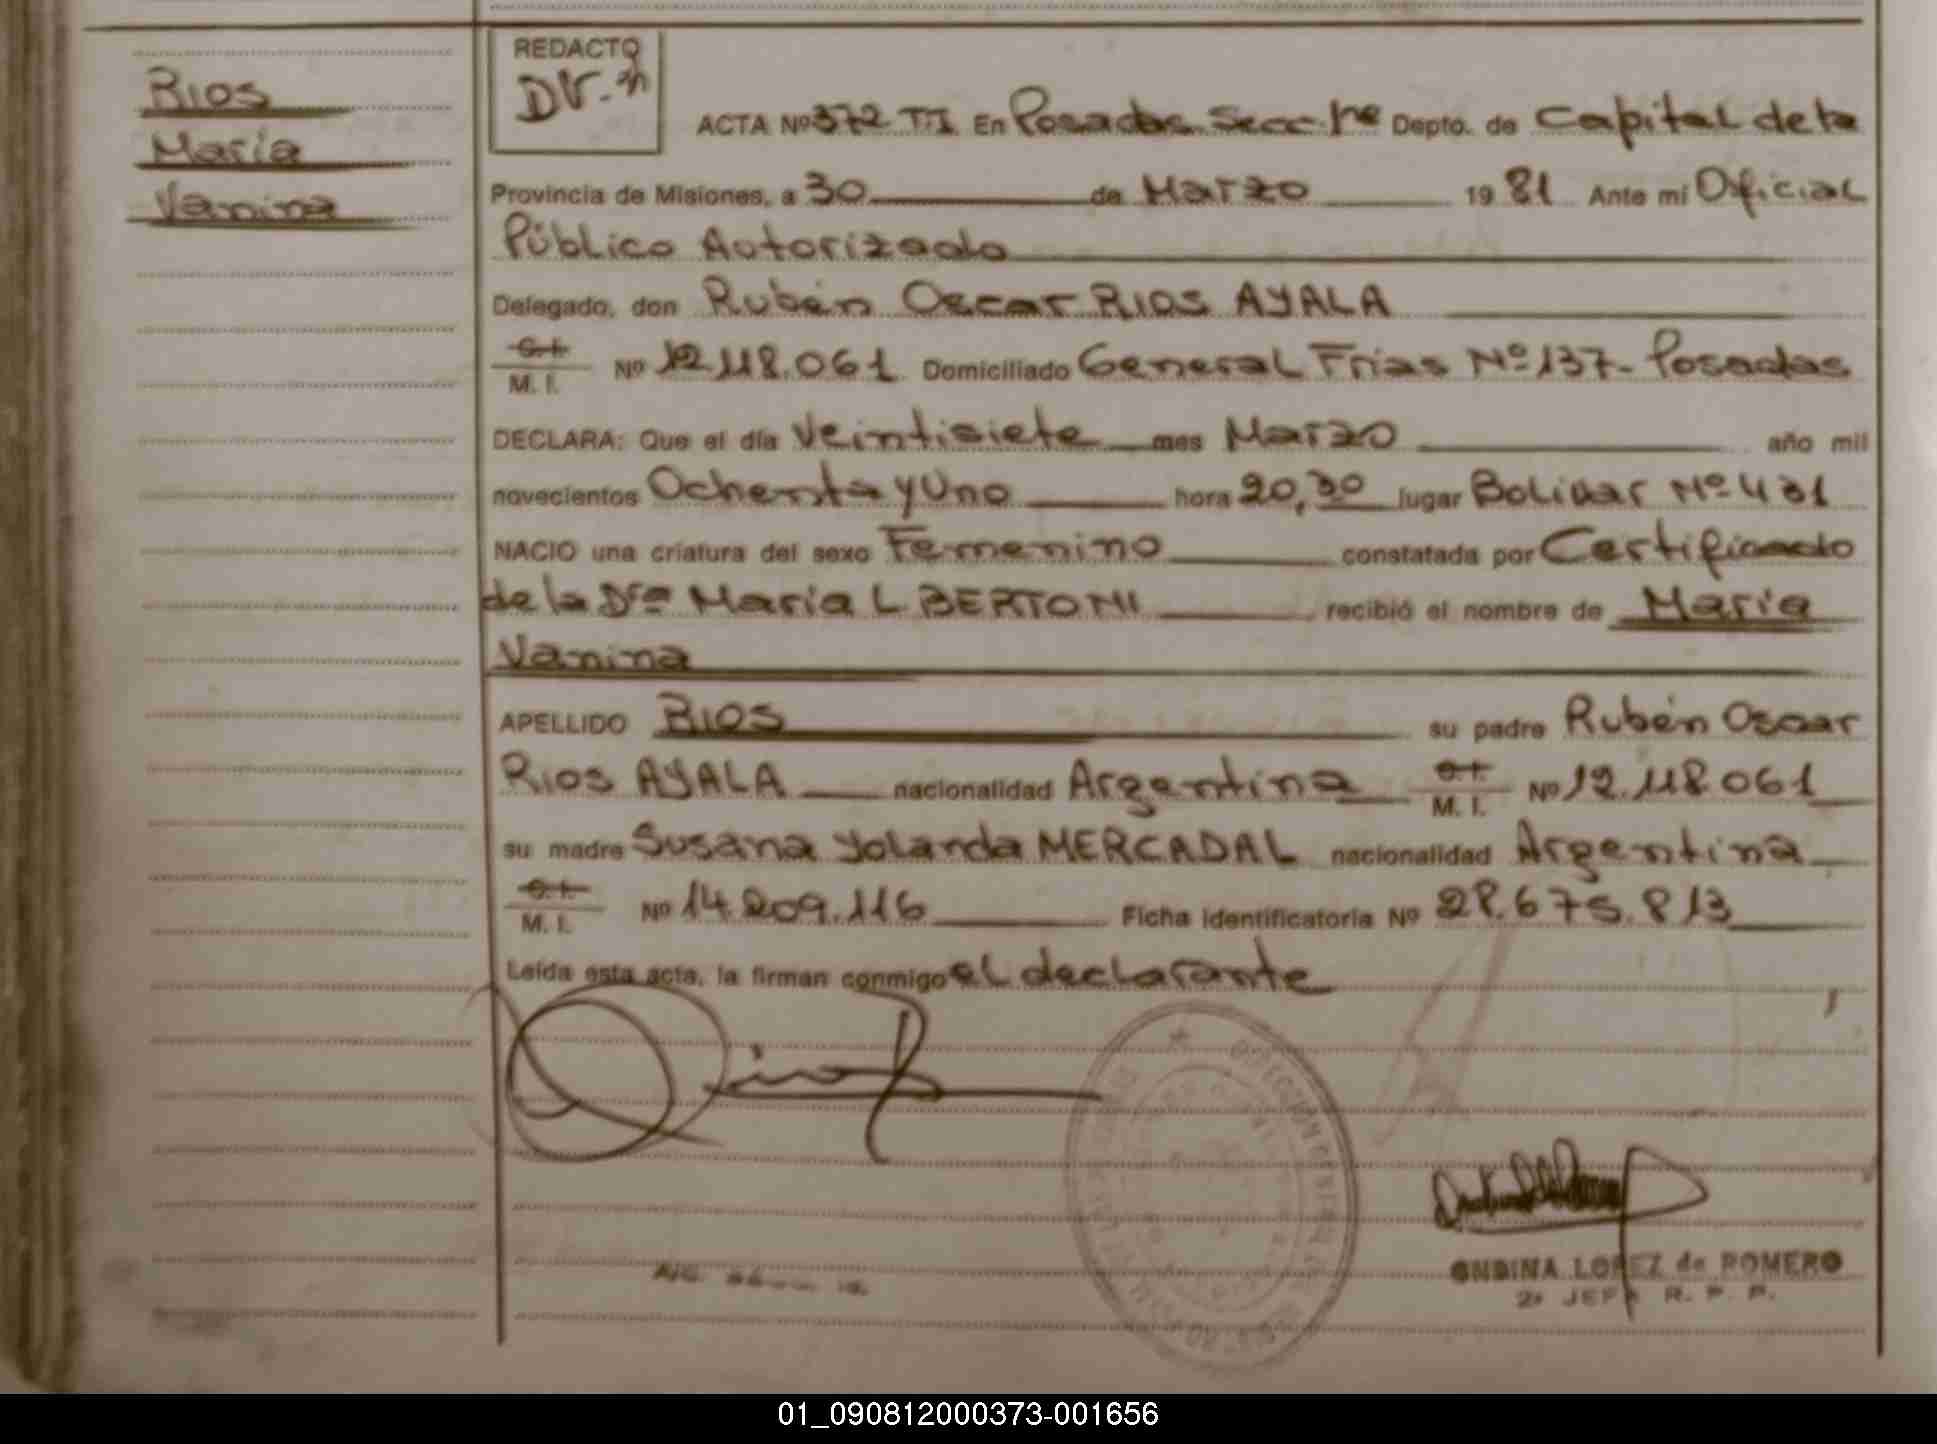 Rios
María
Vanina
REDACTO
ACTA Nº 372 TI En Posadas Secc. 1ra Depto. de Capital de la
Provincia de Misiones, a 30 de Marzo 1981 Ante mi Oficial
Público Autorizado
Delegado, don Rubén Oscar RIOS AYALA
C.I. M. I. Nº 12.118.061 Domiciliado General Frias Nº 137- Posadas
DECLARA: Que el día Veintisiete mes Marzo año mil
novecientos Ochenta y Uno hora 20,30 lugar Bolivar Nº 431
NACIO una criatura del sexo Femenino constatada por Certificado
de la Dra María L BERTONI recibió el nombre de María
Vanina
APELLIDO RIOS su padre Rubén Oscar
Rios AYALA nacionalidad Argentina C.I. M. I. Nº 12.118.061
su madre Susana Yolanda MERCADAL nacionalidad Argentina
C.I. M. I. Nº 14.209.116 Ficha identificatoria Nº 28.675.813
Leída esta acta, la firman conmigo el declarante
ONDINA LOPEZ de ROMERO
2º JEFE R. P. P.
01_090812000373-001656